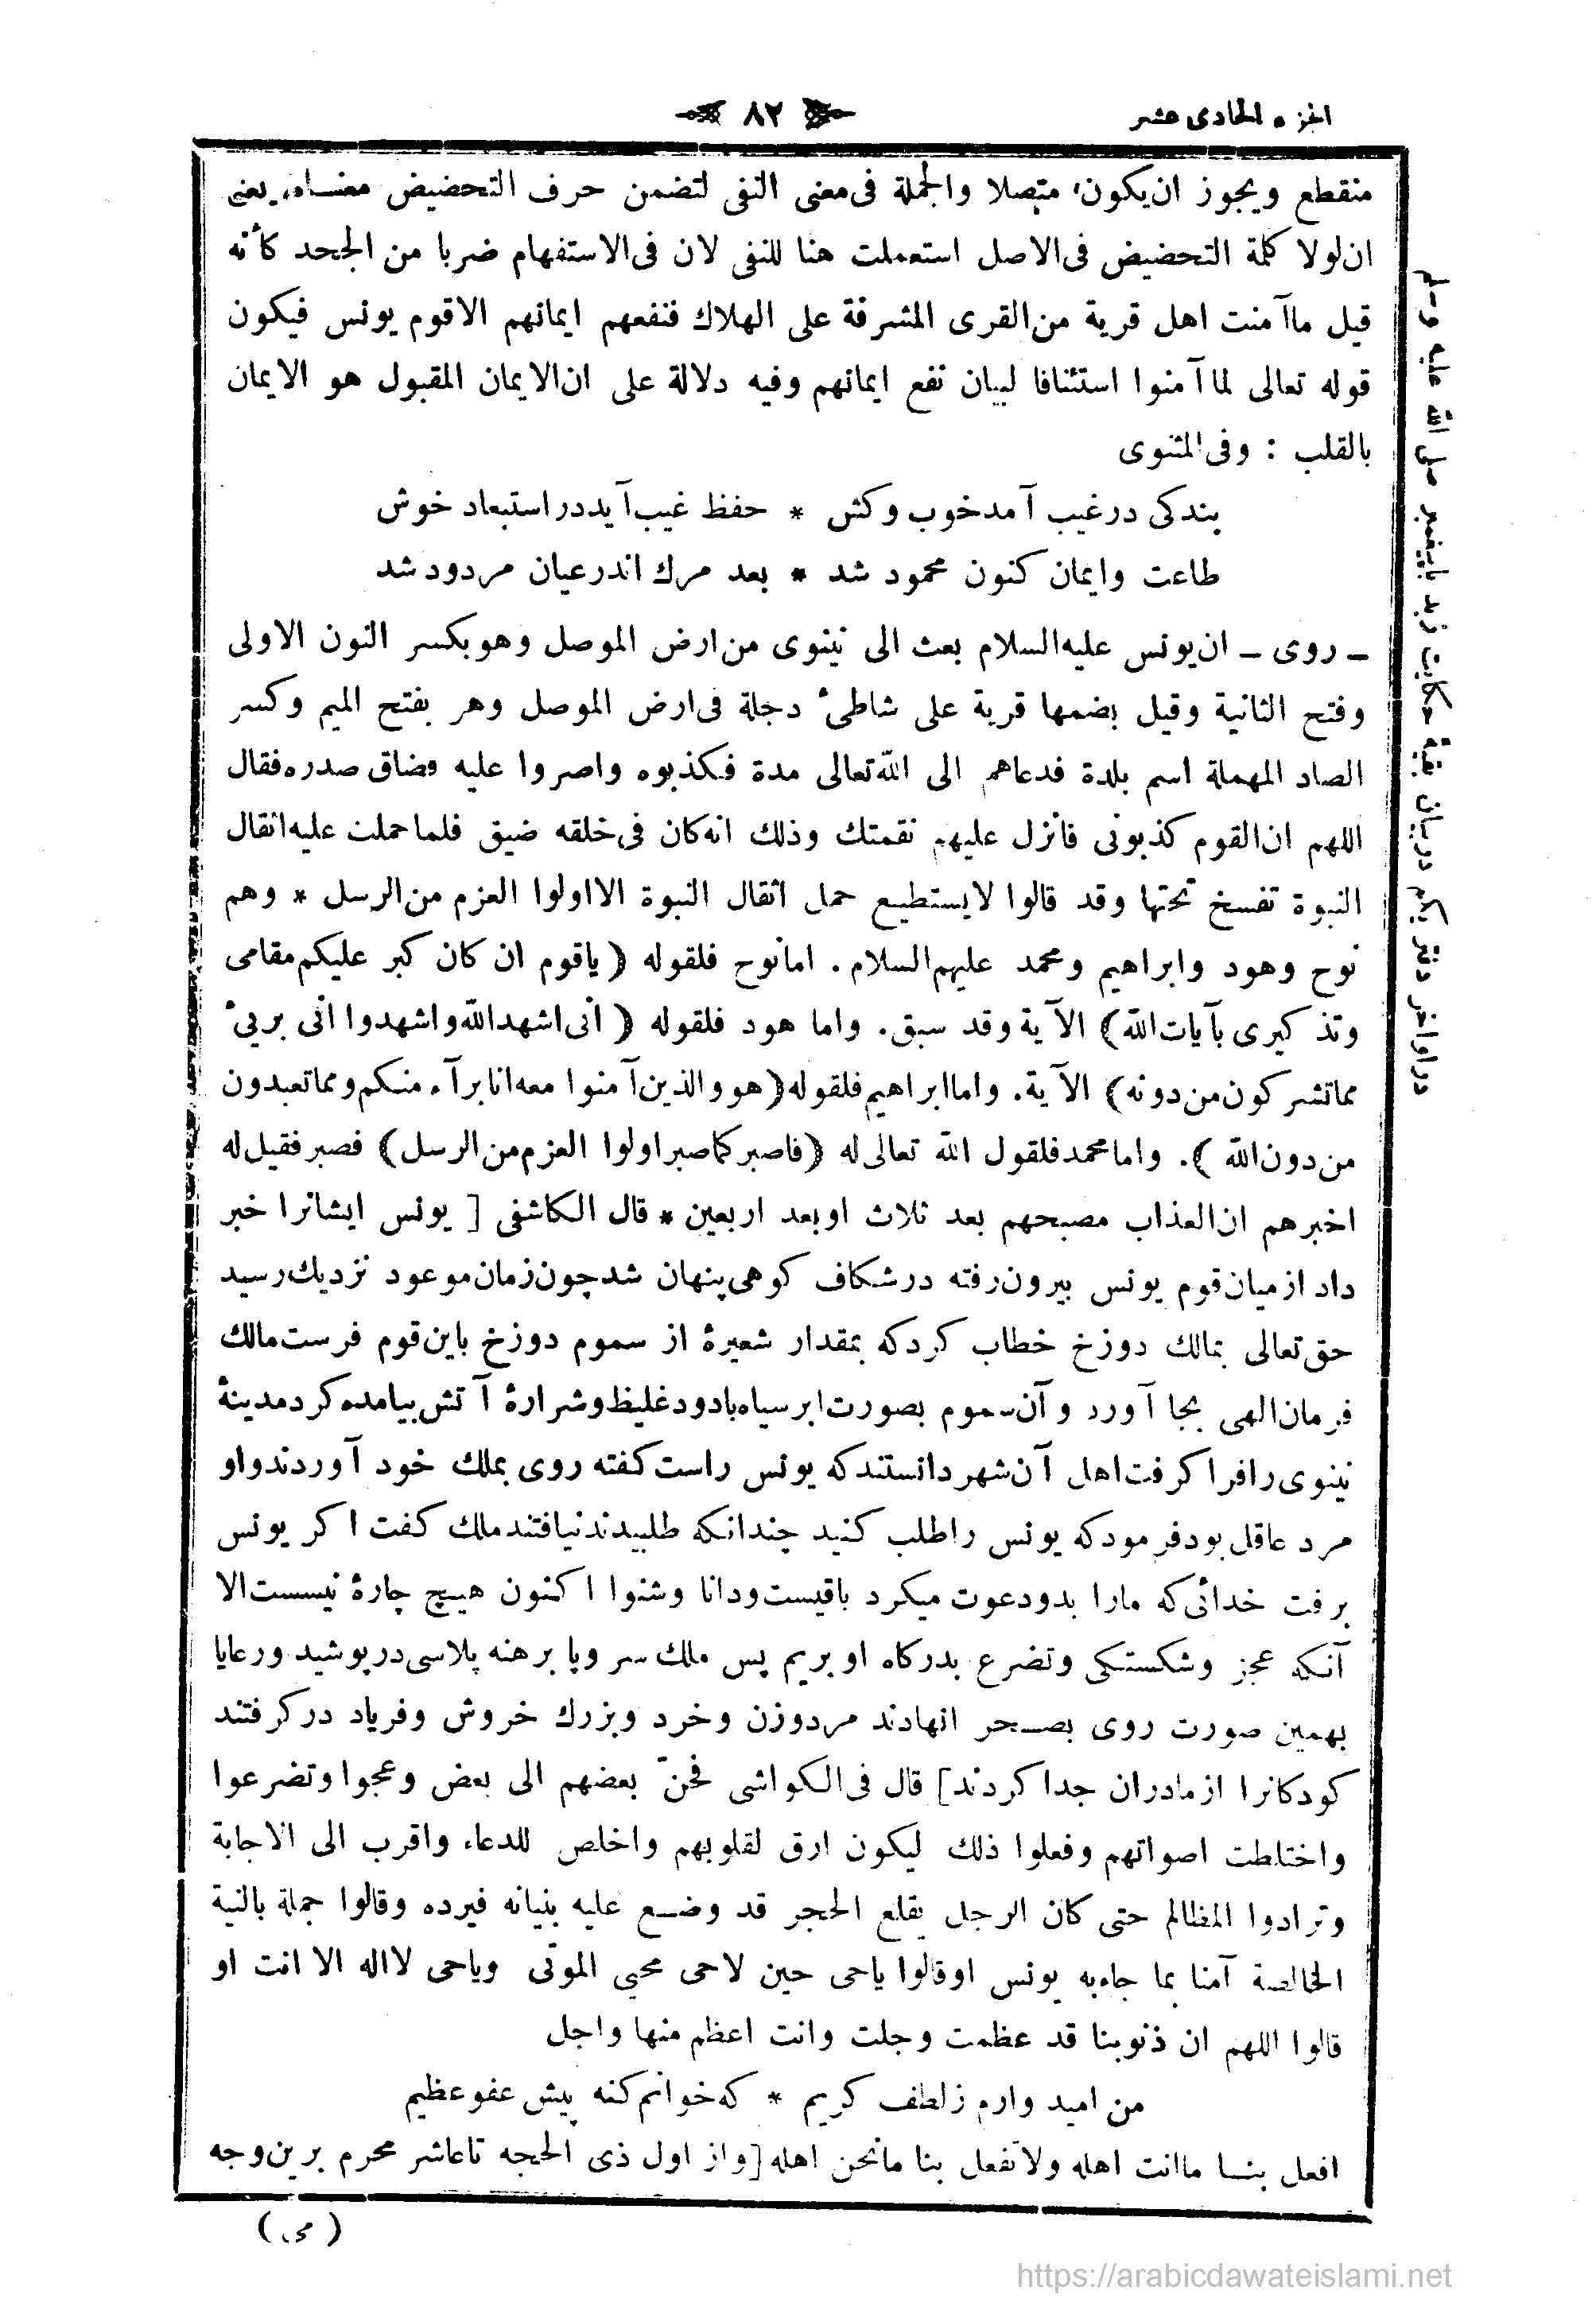 الجزء الحادى عشر
٨٢
منقطع ويجوز ان يكون متصلا والجملة فى معنى النفى لتضمن حرف التحضيض معناه يعنى
ان لولا كلمة التحضيض فى الاصل استعملت هنا للنفى لان فى الاستفهام ضربا من الجحد كأنه
قيل ماآمنت اهل قرية من القرى المشرفة على الهلاك فنفعهم ايمانهم الاقوم يونس فيكون
قوله تعالى لما آمنوا استئنافا لبيان نفع ايمانهم وفيه دلالة على ان الايمان المقبول هو الايمان
بالقلب : وفى المثنوى
بندكى درغيب آمد خوب وكش * حفظ غيب آيد در استبعاد خوش
طاعت وايمان كنون محمود شد * بعد مرك اندر عيان مردود شد
ـ روى ـ ان يونس عليه السلام بعث الى نينوى من ارض الموصل وهو بكسر النون الاولى
وفتح الثانية وقيل بضمها قرية على شاطئ دجلة فى ارض الموصل وهر بفتح الميم وكسر
الصاد المهملة اسم بلدة فدعاهم الى الله تعالى مدة فكذبوه واصروا عليه فضاق صدره فقال
اللهم ان القوم كذبونى فانزل عليهم نقمتك وذلك انه كان فى خلقه ضيق فلما حملت عليه اثقال
النبوة تفسخ تحتها وقد قالوا لايستطيع حمل اثقال النبوة الا اولوا العزم من الرسل * وهم
نوح وهود وابراهيم ومحمد عليهم السلام . اما نوح فلقوله ( ياقوم ان كان كبر عليكم مقامى
وتذكيرى بآيات الله ) الآية وقد سبق . واما هود فلقوله ( انى اشهد الله واشهدوا انى بريئ
مما تشركون من دونه ) الآية . واما ابراهيم فلقوله ( هو والذين آمنوا معه انا برآء منكم ومما تعبدون
من دون الله ) . واما محمد فلقول الله تعالى له ( فاصبر كما صبر اولوا العزم من الرسل ) فصبر فقيل له
اخبرهم ان العذاب مصبحهم بعد ثلاث او بعد اربعين * قال الكاشفى [ يونس ايشانرا خبر
داد از ميان قوم يونس بيرون رفته در شكاف كوهى پنهان شد چون زمان موعود نزديك رسيد
حق تعالى بمالك دوزخ خطاب كرد كه بمقدار شعيرۀ از سموم دوزخ باين قوم فرست مالك
فرمان الهى بجا آورد وآن سموم بصورت ابر سياه بادود غليظ وشرارۀ آتش بيامده كرد مدينۀ
نينوى را فرا كرفت اهل آن شهر دانستند كه يونس راست كفته روى بملك خود آوردند واو
مرد عاقل بود فرمود كه يونس را طلب كنيد چندانكه طلبيدند نيافتند ملك كفت اكر يونس
برفت خدائى كه مارا بدو دعوت ميكرد باقيست ودانا وشنوا اكنون هيچ چارۀ نيست الا
آنكه عجز وشكستكى وتضرع بدركاه او بريم پس ملك سر وپا برهنه پلاسى در پوشيد ورعايا
بهمين صورت روى بصحر انهادند مرد وزن وخرد وبزرك خروش وفرياد در كرفتند
كودكانرا از مادران جدا كردند ] قال فى الكواشى فحنّ بعضهم الى بعض وعجوا وتضرعوا
واختلطت اصواتهم وفعلوا ذلك ليكون ارق لقلوبهم واخلص للدعاء واقرب الى الاجابة
وترادوا المظالم حتى كان الرجل يقلع الحجر قد وضع عليه بنيانه فيرده وقالوا جملة بالنية
الخالصة آمنا بما جاء به يونس او قالوا ياحى حين لاحى محيي الموتى وياحى لااله الا انت او
قالوا اللهم ان ذنوبنا قد عظمت وجلت وانت اعظم منها واجل
من اميد وارم زلطف كريم * كه خوانم كنه پيش عفو عظيم
افعل بنا ماانت اهله ولاتفعل بنا مانحن اهله [ واز اول ذى الحجه تا عاشر محرم برين وجه
در اواخر دفتر يكم در بيان بقيۀ حكايت زيد با پيغمبر صلى الله عليه وسلم
( مى )
https://arabicdawateislami.net